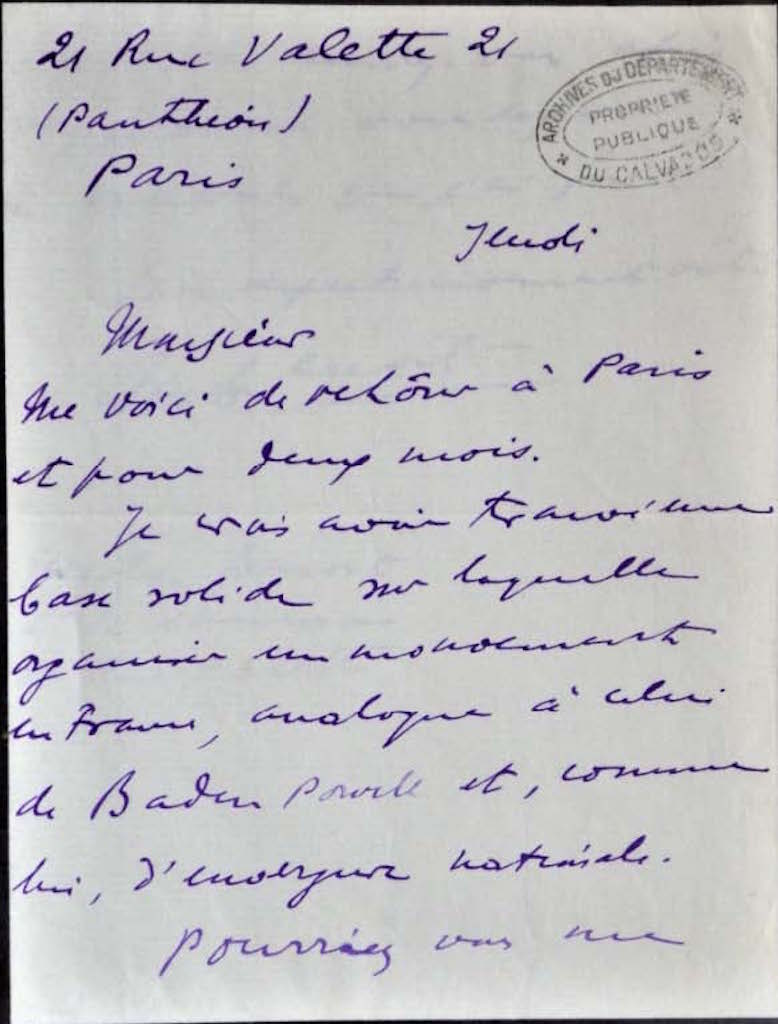 21 Rue Valette 21
(Panthéon)
Paris
ARCHIVES DU DÉPARTEMENT
PROPRIÉTÉ
PUBLIQUE
* DU CALVADOS *
Jeudi
Monsieur
Me voici de retour à Paris
et pour deux mois.
Je crois avoir trouvé une
base solide sur laquelle
organiser un mouvement
en France, analogue à celui
de Baden Powell et, comme
lui, d'envergure nationale.
Pourriez vous me